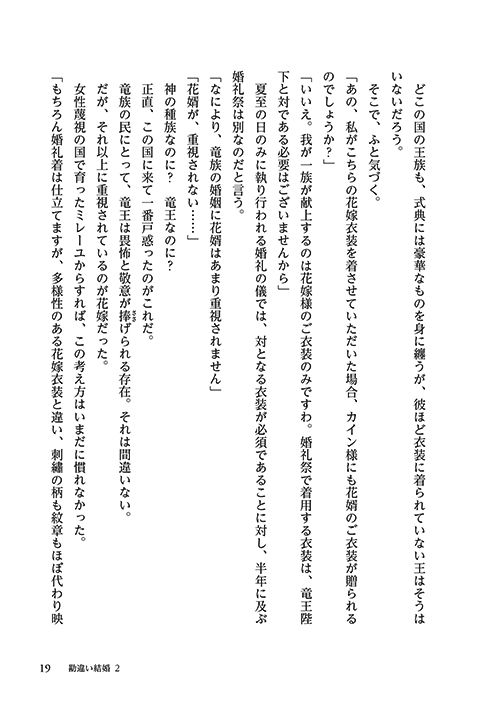 どこの国の王族も、式典には豪華なものを身に纏うが、彼ほど衣装に着られていない王はそうは
いないだろう。
そこで、ふと気づく。
「あの、私がこちらの花嫁衣装を着させていただいた場合、カイン様にも花婿のご衣装が贈られる
のでしょうか？」
「いいえ。我が一族が献上するのは花嫁様のご衣装のみですわ。婚礼祭で着用する衣装は、竜王陛
下と対である必要はございませんから」
夏至の日のみに執り行われる婚礼の儀では、対となる衣装が必須であることに対し、半年に及ぶ
婚礼祭は別なのだと言う。
「なにより、竜族の婚姻に花婿はあまり重視されません」
「花婿が、重視されない……」
神の種族なのに？　竜王なのに？
正直、この国に来て一番戸惑ったのがこれだ。
竜族の民にとって、竜王は畏怖と敬意が捧げられる存在。それは間違いない。
だが、それ以上に重視されているのが花嫁だった。
女性蔑視の国で育ったミレーユからすれば、この考え方はいまだに慣れなかった。
「もちろん婚礼着は仕立てますが、多様性のある花嫁衣装と違い、刺繍の柄も紋章もほぼ代わり映
19　勘違い結婚 2